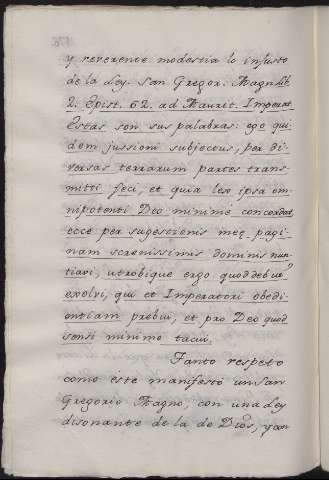 y reverente modestia lo injusto
de la Ley. San Gregor. Magn. Lib.
2. Epist. 62. ad Maurit. Imperat.
Estas son sus palabras: ego qui-
dem jussioni subjectus, per di-
versas terrarum partes trans-
mitti feci, et quia lex ipsa om-
nipotenti Deo minime concordat,
ecce per sugestionis meę pagi-
nam serenissimis dominis nun-
tiavi, utrobique ergo quod debui
exolvi, qui et Imperatori obedi-
entiam prebui, et pro Deo quod
sensi minime tacui.
Tanto respeto
como este manifestó un San
Gregorio Magno, con una Ley
disonante de la de Dios, y con